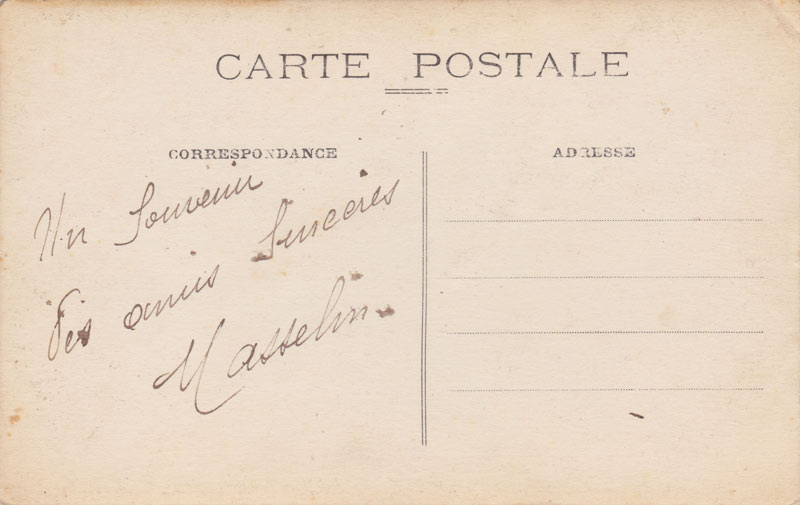 CARTE POSTALE
CORRESPONDANCE
ADRESSE
Un Souvenir
des amis Sinceres
Masselin